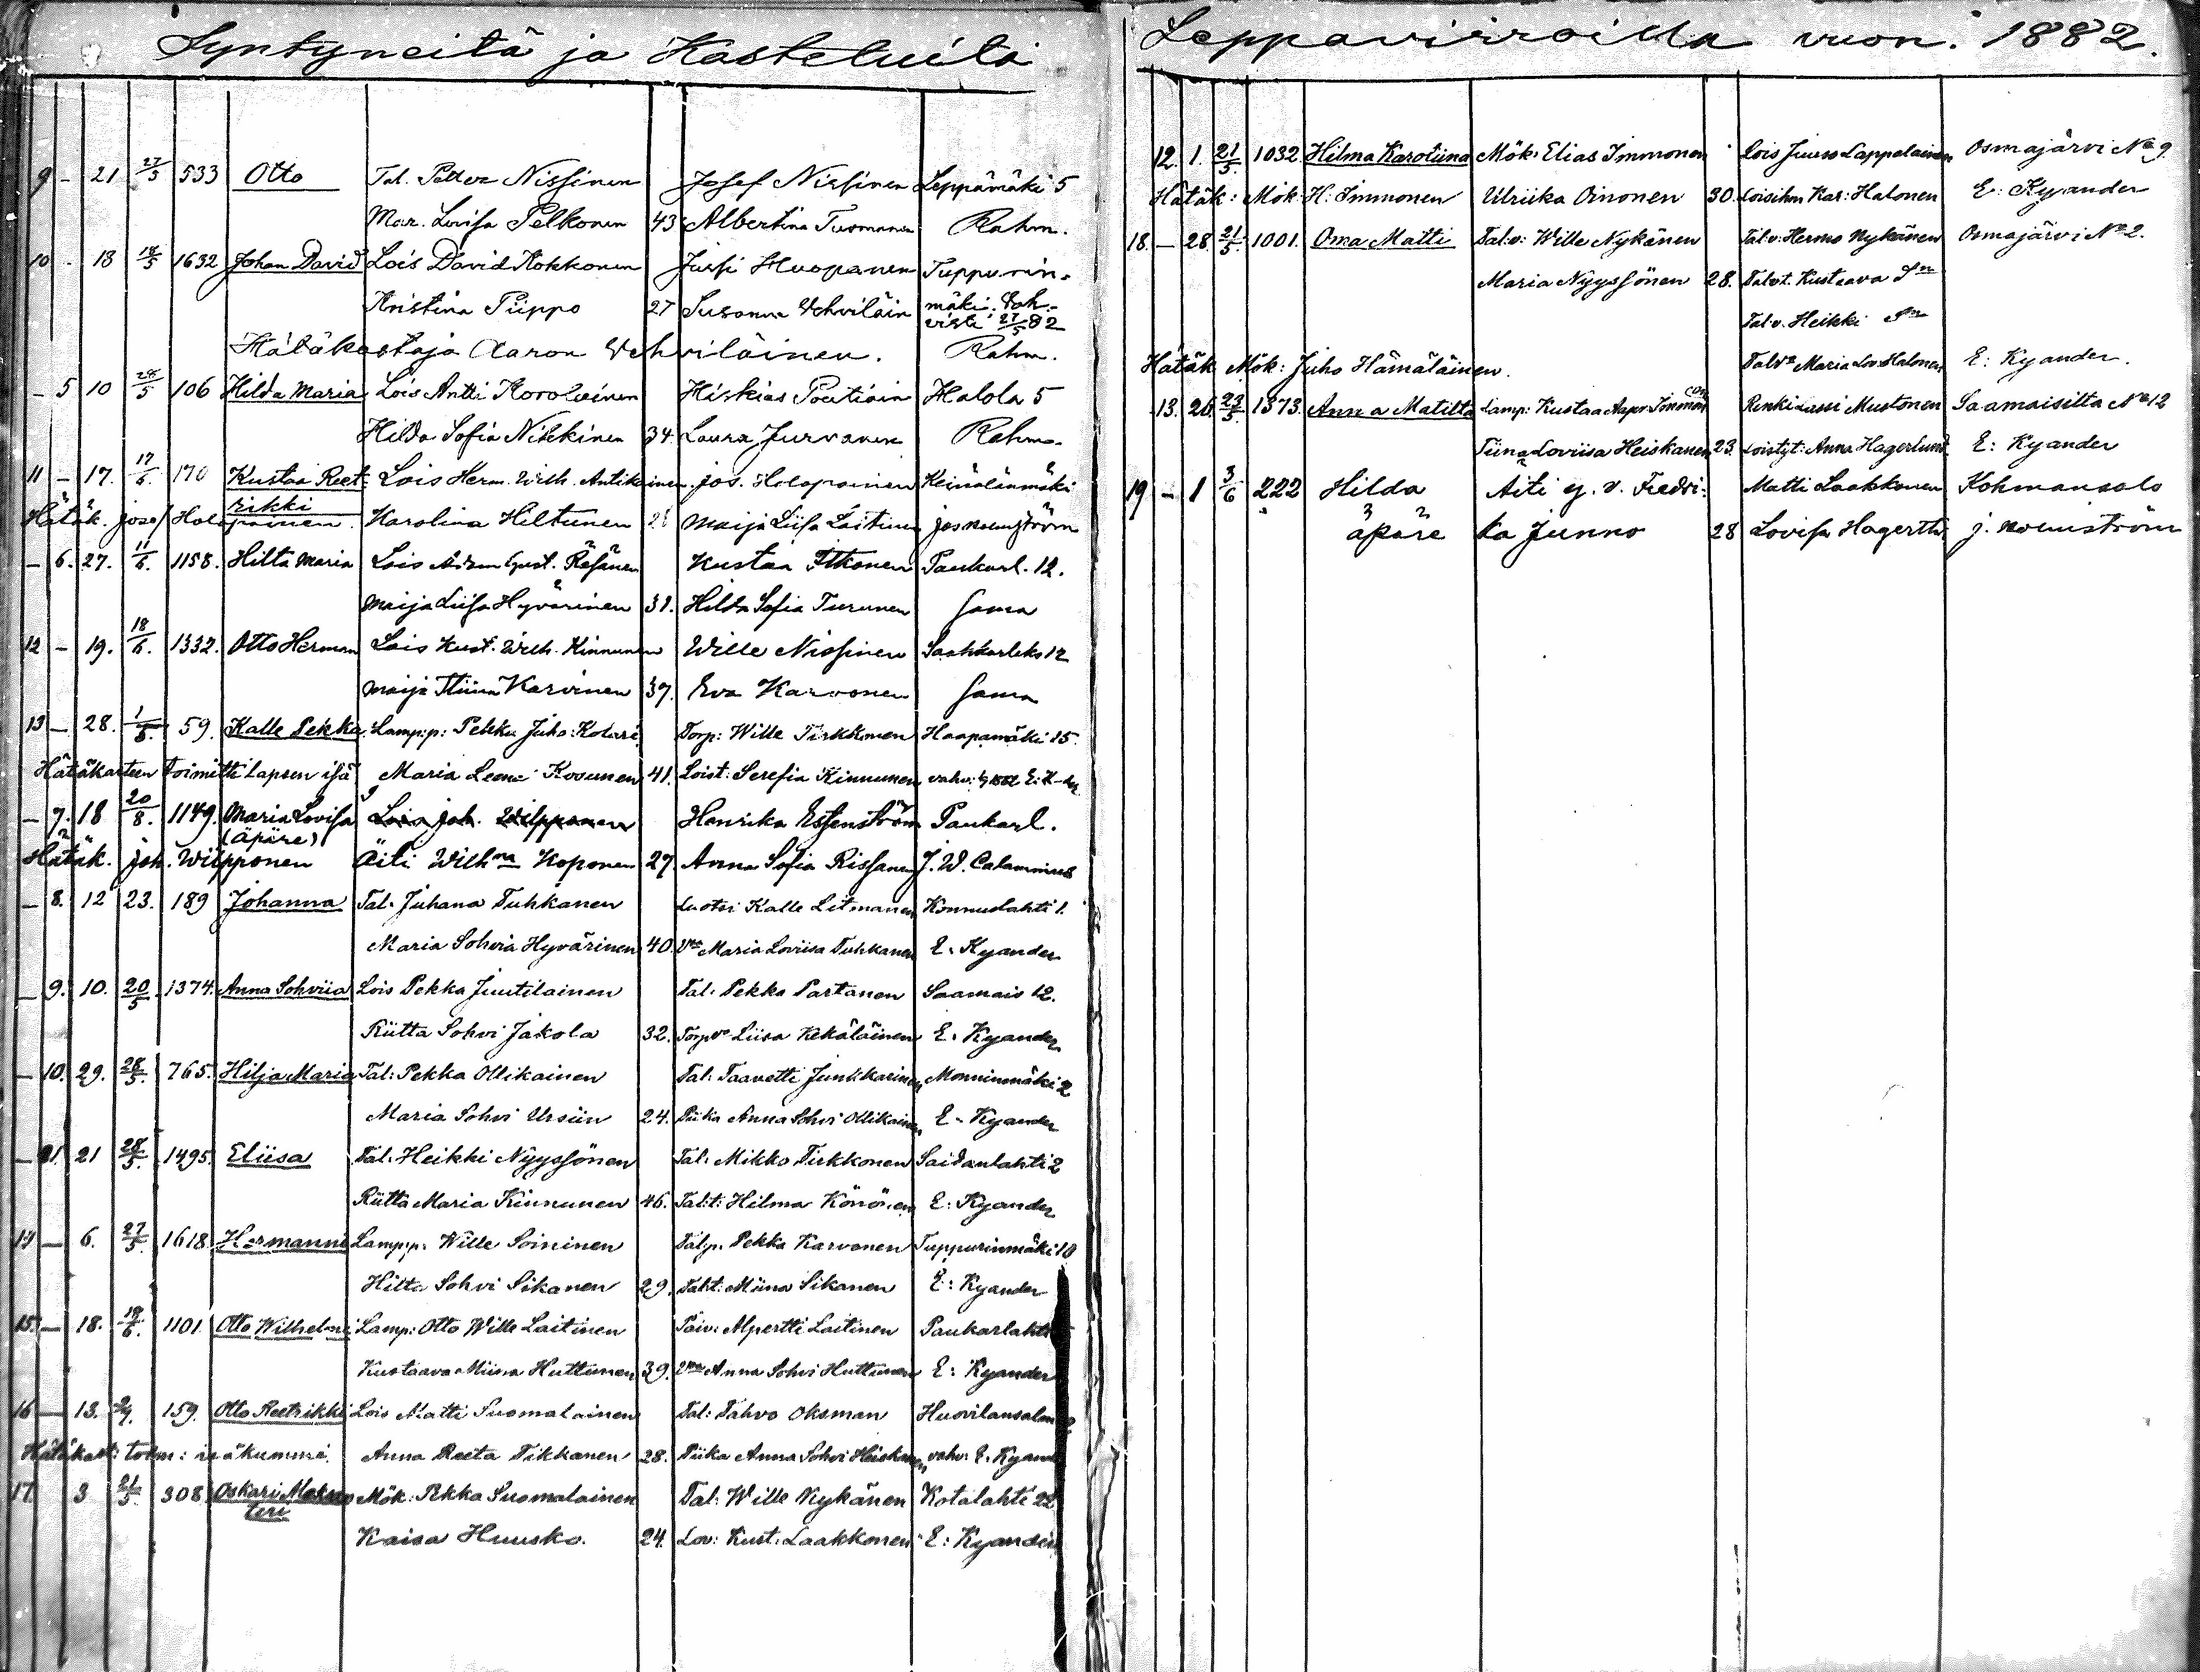 Syntyneitä ja Kasteluita
9 - 21 27/5 533 Otto Tal. Petter Nissinen Josef Nissinen Leppämäki 5
Mar. Lovisa Pelkonen 43 Albertina Tuomanen Rahm.
10 - 18 18/5 1632 Johan David Lois David Kokkonen Jussi Huopanen Tuppurin-
Kristina Piippo 27 Susanna Vehviläin mäki. Vah-
visti 27/5 82
Hätäkastaja Aaron Vehviläinen. Rahm.
- 5 10 28/5 106 Hilda Maria Lois Antti Korolainen Hiskias Poutiain Halola 5
Hilda Sofia Niskinen 34 Laura Jurvanen Rahm.
11 - 17. 17/6. 170 Kustaa Reet- Lois Herm. Wilh. Antikainen. Jos. Holopainen Keinälänmäki
rikki
Hätäk. Josef Holopainen. Karolina Hiltunen 28 Maija Liisa Laitinen Jos Molmström
- 6. 27. 11/6. 1158. Hilta Maria Lois Adam Gust. Räsänen Kustaa Itkonen Paukarl. 12.
Maija Liisa Hyvärinen 31. Hilda Sofia Turunen Sama
12 - 19. 18/6. 1332. Otto Herman Lois Kust. Wilh. Kinnunen Wille Nissinen Saahkarlaks 12
Maija Stiina Karvinen 37. Eva Karvonen Sama
13 - 28. 1/6. 59. Kalle Pekka Lamp:p: Pekka Juho: Kolari Torp: Wille Tirkkonen Haapamäki 15.
Hätäkasteen toimitti lapsen isä Maria Leena Kosunen 41. Loist: Serefia Kinnunen vahv:
- 7. 18 20/8. 1149. Maria Lovisa Lois Joh. Wilpponen Henrika Essenström Paukarl.
(äpäre)
Hätäk. Joh. Wilpponen Äiti Wilhna Koponen 27. Anna Sofia Rissanen J. W. Calamnius
- 8. 12 23. 189 Johanna Tal. Juhana Tuhkanen Luotsi Kalle Litmanen Konnuslahti 1.
Maria Sohvia Hyvärinen 40. Vmo Maria Loviisa Tuhkanen E. Kyander
- 9. 10. 20/5 1374. Anna Sohviia Lois Pekka Juutilainen Tal: Pekka Partanen Saamais 12.
Riitta Sohvi Jakola 32. Torpv Liisa Kekäläinen E. Kyander
- 10. 29. 28/5. 765. Hilja Maria Tal: Pekka Ollikainen Tal: Taavetti Junkkarinen Monninmäki 2
Maria Sohvi Ursiin 24. Piika Anna Sohvi Ollikainen E. Kyander
- 11. 21 28/5. 1495. Eliisa Tal: Heikki Nyyssönen Tal: Mikko Tirkkonen Saidanlahti 2
Riitta Maria Kinnunen 46. Tal:t: Hilma Könönen E: Kyander
14 - 6. 27/5. 1618 Hermanni Lamp:p: Wille Soininen Tal:p. Pekka Karvonen Tuppurinmäki 10
Hilta Sohvi Sikanen 29. Tal:t: Miina Sikanen E: Kyander
15. - 18. 18/6. 1101. Otto Wilhelmi Lamp: Otto Wille Laitinen Päiv: Alpertti Laitinen Paukarlahti
Kustaava Miina Huttunen 39. Vmo Anna Sohvi Huttunen E: Kyander
16 - 13. 159. Otto Reetrikki Lois Matti Suomalainen Tal: Tahvo Oksman Huovilansalon
Hätäkast: toim: isäkummi. Anna Reeta Tikkanen 28. Piika Anna Sohvi Heiskanen vahv: E. Kyand
17. 3 21/5. 308 Oskari Maknus Mök: Pekka Suomalainen Tal: Wille Nykänen Kotalahti 22
teri
Kaisa Huusko. 24. Lov: Kust: Laakkonen E: Kyander
Leppävirroilla vuon. 1882.
12. 1. 21/5. 1032. Hilma Karoliina Mök: Elias Immonen Lois Juuso Lappalainen Osmajärvi No 9
Hätäk: Mök: H: Immonen Ulriika Oinonen 30. Loisihm Kar: Halonen E: Kyander
18. - 28. 21/5. 1001. Oma Matti Tal:v: Wille Nykänen Tal:v: Hermo Nykänen Osmajärvi No 2.
Maria Nyyssönen 28. Talvt. Kustaava Sn
Tal:v. Heikki Sn
Hätäk Mök: Juho Hämäläinen. Talva Maria Lov: Halonen E: Kyander.
13. 26. 23/5. 1373. Anna Matilta Lamp: Kustaa Aapr Immonen Renki Lassi Mustonen Saamaisilta No 12
Tiina Loviisa Heiskanen 23. Loistyt: Anna Hagerlund E: Kyander
19 - 1 3/6 222 Hilda Äiti y. v. Fredri: Matti Laakkonen Kohmansalo
äpäre ka Junno 28 Lovisa Hagertti J. Molmström